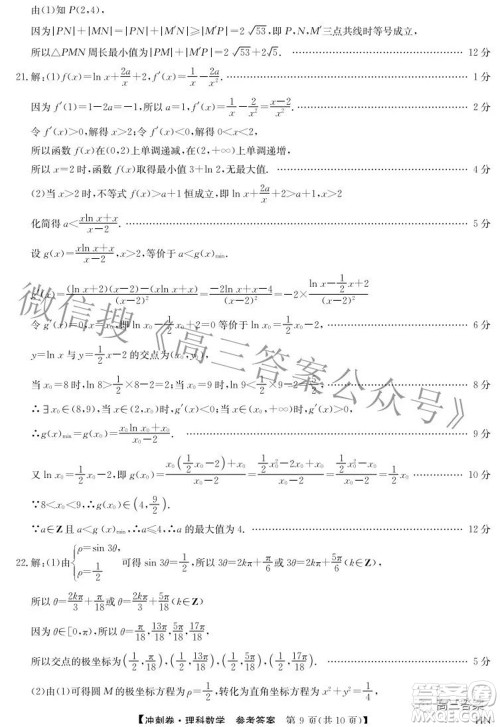 由(1)知 P(2,4),
因为|PN|+|MN|=|PN|+|M′N|⩾|M′P|=2√53,即 P,N,M′三点共线时等号成立,
所以△PMN 周长最小值为|PM|+|M′P|=2√53+2√5. 12 分
21.解:(1)f(x)=ln x+2a/x+2,f′(x)=1/x-2a/x². 1 分
因为 f′(1)=1-2a=-1,所以 a=1,f′(x)=1/x-2/x²=(x-2)/x². 2 分
令 f′(x)>0,解得 x>2,令 f′(x)<0,解得 0<x<2,
所以函数 f(x)在(0,2)上单调递减,在(2,+∞)上单调递增,
所以 x=2 时,函数 f(x)取得最小值 3+ln 2,无最大值. 4 分
(2)当 x>2 时,不等式 f(x)>a+1 恒成立,即 ln x+2a/x+2>a+1,
化简得 a<(xln x+x)/(x-2). 5 分
设 g(x)=(xln x+x)/(x-2),x>2,所以 a<g(x)min.
g′(x)=((ln x+2)(x-2)-(xln x+x))/(x-2)²=(-2ln x+x-4)/(x-2)²=-2×(ln x-1/2x+2)/(x-2)²
令 g′(x₀)=0,即 ln x₀-1/2x₀+2=0 等价于 ln x₀=1/2x₀-2, 6 分
y=ln x 与 y=1/2x-2 的交点为(x₀,y₀),
当 x₀=8 时,ln 8>1/2×8-2=2,当 x₀=9 时,ln 9<1/2×9-2=5/2, 8 分
∴∃x₀∈(8,9),当 x∈(2,x₀)时,g′(x)<0;当 x∈(x₀,+∞)时,g′(x)>0;
∴g(x)min=g(x₀)=(x₀ln x₀+x₀)/(x₀-2). 9 分
又 ln x₀=1/2x₀-2,即 g(x₀)=(x₀(1/2x₀-2)+x₀)/(x₀-2)=(1/2x₀²-2x₀+x₀)/(x₀-2)=(1/2x₀²-x₀)/(x₀-2)=1/2x₀, 10 分
∵8<x₀<9,∴g(x₀)∈(4,9/2).
∵a∈Z 且 a<g(x)min,∴a⩽4,∴a 的最大值为 4. 12 分
22.解:(1)由{ρ=sin 3θ, ρ=1/2 可得 sin3θ=1/2,所以 3θ=2kπ+π/6或 3θ=2kπ+5π/6(k∈Z)
所以 θ=2kπ/3+π/18或 θ=2kπ/3+5π/18(k∈Z)
因为 θ∈[0,π),所以 θ=π/18,13π/18,5π/18,17π/18
所以交点的极坐标为(1/2,π/18),(1/2,13π/18),(1/2,5π/18),(1/2,17π/18) 5 分
(2)由(1)可得圆 M 的极坐标方程为 ρ=1/2,转化为直角坐标方程为 x²+y²=1/4
【冲刺卷·理科数学 参考答案 第 9 页(共 10 页)】
微信搜《高三答案公众号》
高三答案